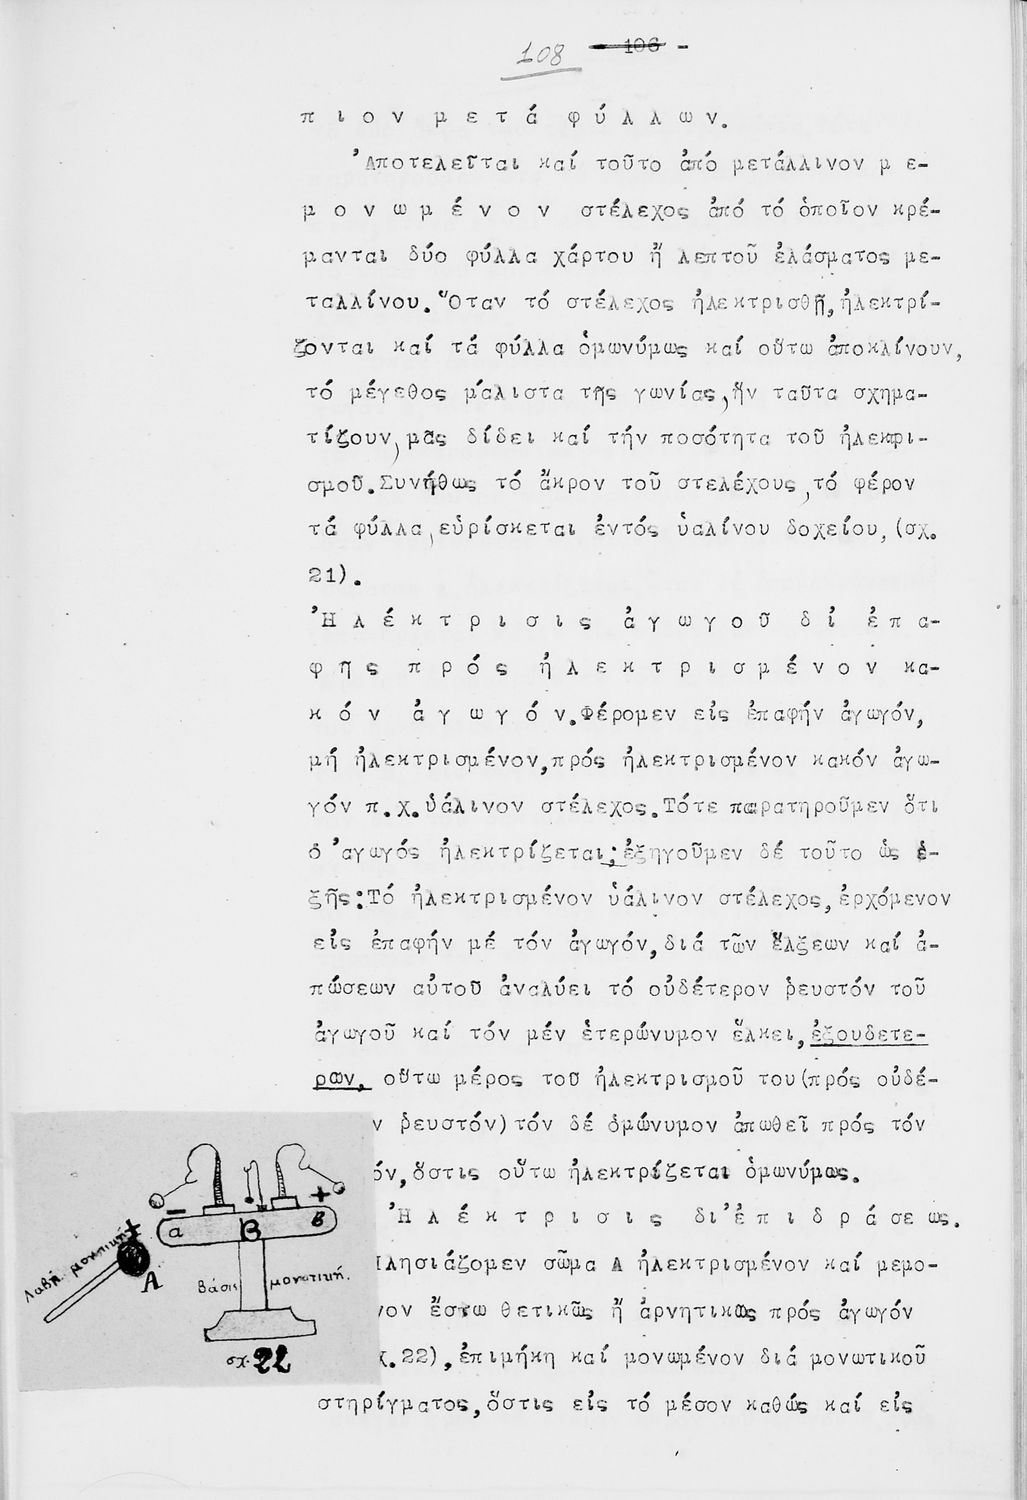 108 - 106 -
π ι ο ν μ ε τ ά φ ύ λ λ ω ν.
Ἀποτελεῖται καί τοῦτο ἀπό μετάλλινον μ ε-
μ ο ν ω μ έ ν ο ν στέλεχος ἀπό τό ὁποῖον κρέ-
μανται δύο φύλλα χάρτου ἤ λεπτοῦ ἐλάσματος με-
ταλλίνου. Ὅταν τό στέλεχος ἠλεκτρισθῇ, ἠλεκτρί-
ζονται καί τά φύλλα ὁμωνύμως καί οὕτω ἀποκλίνουν,
τό μέγεθος μάλιστα τῆς γωνίας, ἥν ταῦτα σχημα-
τίζουν, μᾶς δίδει καί τήν ποσότητα τοῦ ἠλεκρι-
σμοῦ. Συνήθως τό ἄκρον τοῦ στελέχους, τό φέρον
τά φύλλα, εὑρίσκεται ἐντός ὑαλίνου δοχείου, (σχ.
21).
Ἠ λ έ κ τ ρ ι σ ι ς ἀ γ ω γ ο ῦ δ ι ἐ π α-
φ ῆ ς π ρ ό ς ἠ λ ε κ τ ρ ι σ μ έ ν ο ν κα-
κ ό ν ἀ γ ω γ ό ν. Φέρομεν εἰς ἐπαφήν ἀγωγόν,
μή ἠλεκτρισμένον, πρός ἠλεκτρισμένον κακόν ἀγω-
γόν π.χ. ὑάλινον στέλεχος. Τότε παρατηροῦμεν ὅτι
ὁ ἀγωγός ἠλεκτρίζεται; ἐξηγοῦμεν δέ τοῦτο ὡς ἑ-
ξῆς: Τό ἠλεκτρισμένον ὑάλινον στέλεχος, ἐρχόμενον
εἰς ἐπαφήν μέ τόν ἀγωγόν, διά τῶν ἕλξεων καί ἀ-
πώσεων αὐτοῦ ἀναλύει τό οὐδέτερον ῥευστόν τοῦ
ἀγωγοῦ καί τόν μέν ἑτερώνυμον ἕλκει, ἐξουδετε-
ρῶν, οὕτω μέρος τοῦ ἠλεκτρισμοῦ του (πρός οὐδέ-
ν ῥευστόν) τόν δέ ὁμώνυμον ἀπωθεῖ πρός τόν
όν, ὅστις οὕτω ἠλεκτρίζεται ὁμωνύμως.
Ἠ λ έ κ τ ρ ι σ ι ς δι' ἐ π ι δ ρ ά σε ως.
λησιάζομεν σῶμα Α ἠλεκτρισμένον καί μεμο-
νον ἔστω θετικῶς ἤ ἀρνητικῶς πρός ἀγωγόν
χ. 22), ἐπιμήκη καί μονωμένον διά μονωτικοῦ
στηρίγματος, ὅστις εἰς τό μέσον καθώς καί εἰς
- +
α Β β
+
Α
Λαβή μονωτική
βάσις μονωτική.
σχ. 22